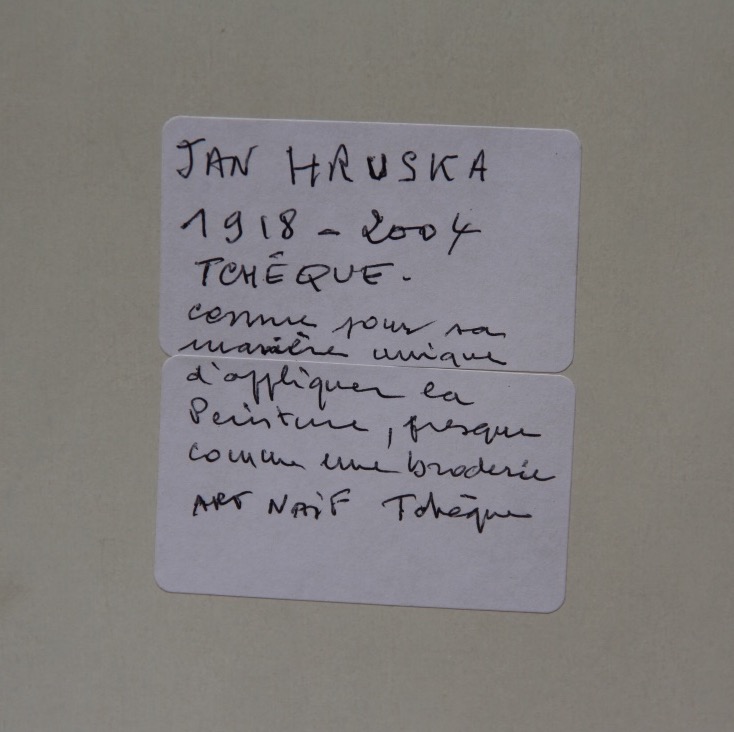 JAN HRUSKA
1918 - 2004
TCHÊQUE.
connue pour sa
manière unique
d'appliquer la
Peinture, presque
comme une broderie
ART NAÏF Tchèque